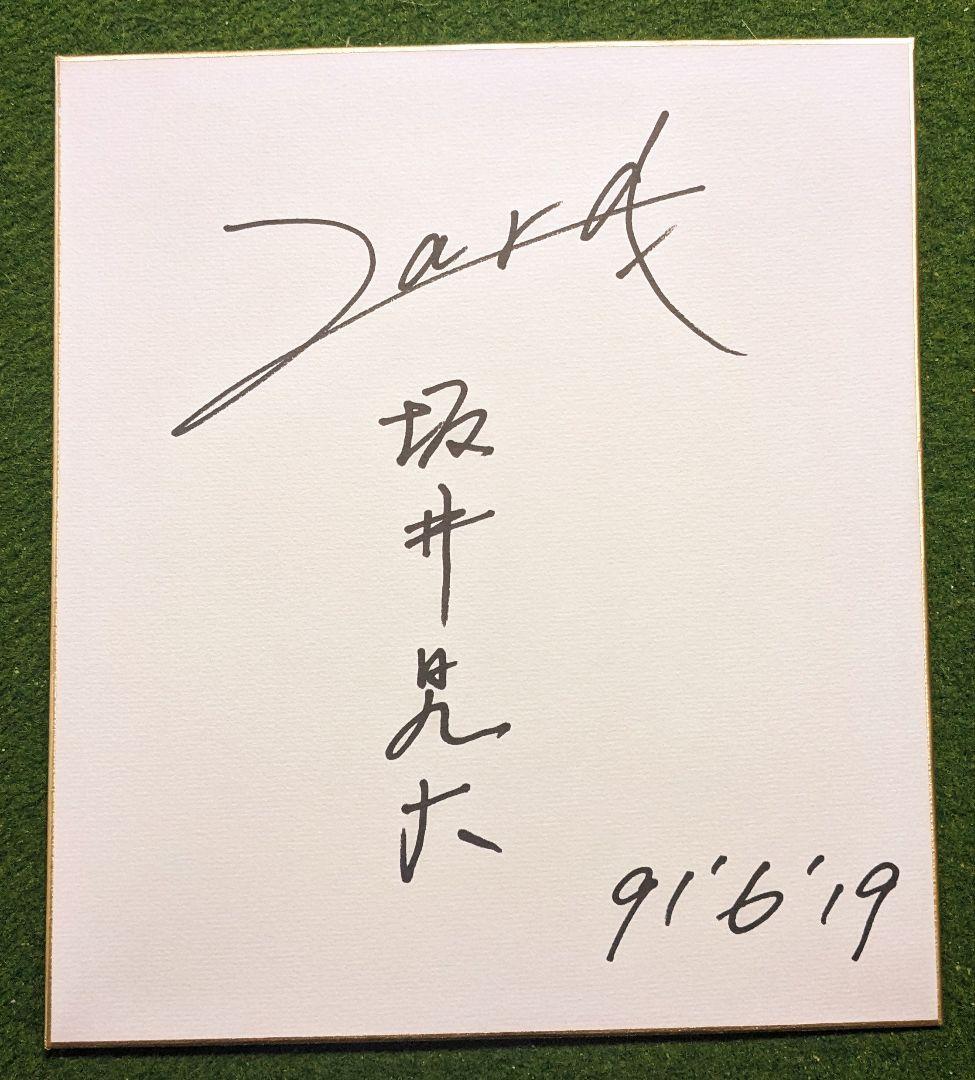 Zard
坂井泉水
91'6'19